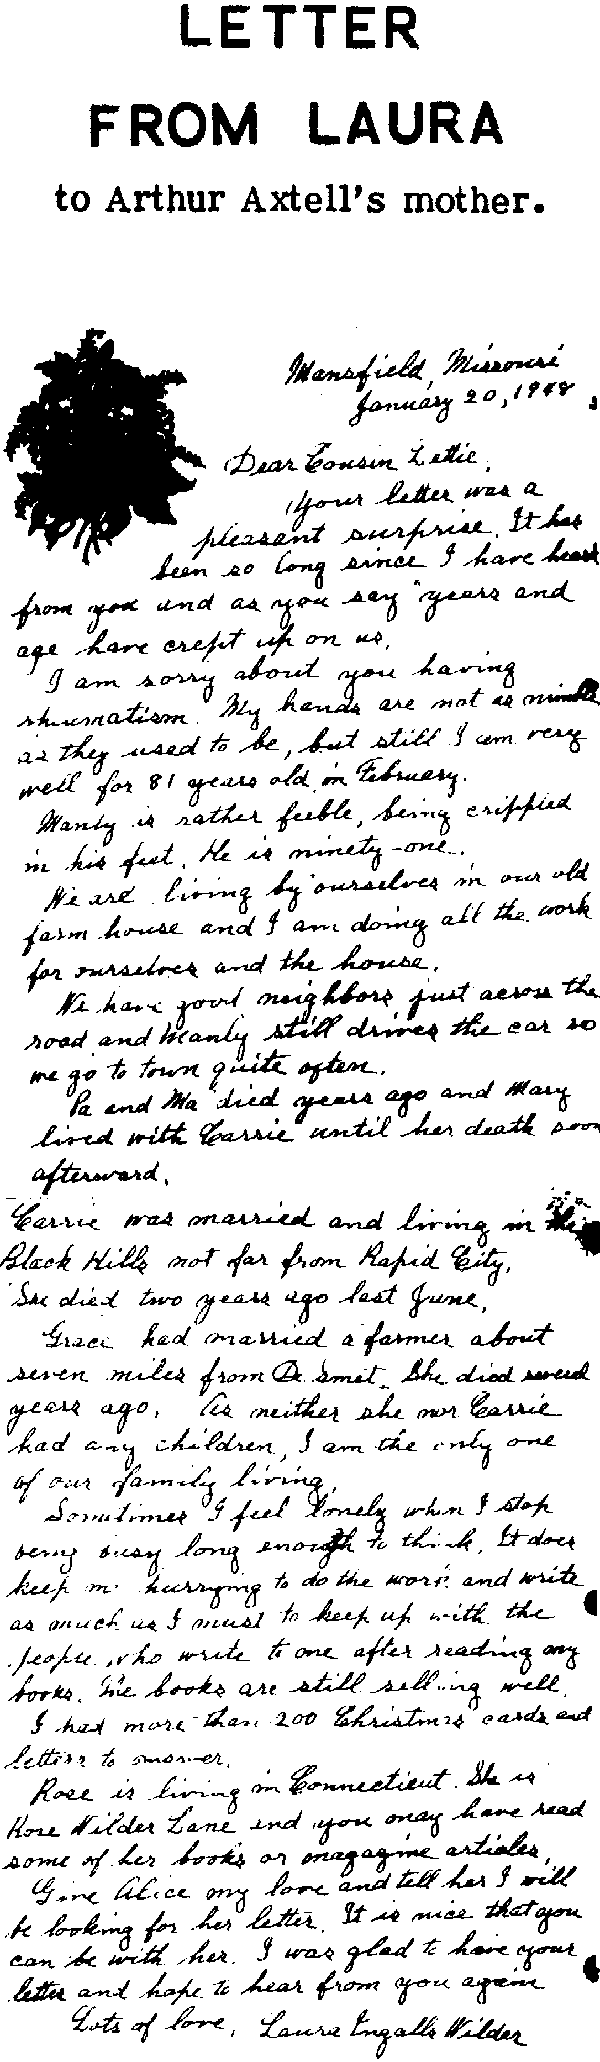 LETTER
FROM LAURA
to Arthur Axtell's mother.
Mansfield, Missouri
January 20, 1948
Dear Cousin Lettie,
Your letter was a
pleasant surprise. It has
been so long since I have heard
from you and as you say "years and
age have crept up on us.
I am sorry about you having
rheumatism. My hands are not as nimble
as they used to be, but still I am very
well for 81 years old in February.
Manly is rather feeble, being crippled
in his feet. He is ninety-one.
We are living by ourselves in our old
farm house and I am doing all the work
for ourselves and the house.
We have good neighbors just across the
road and Manly still drives the car so
we go to town quite often.
Pa and Ma died years ago and Mary
lived with Carrie until her death soon
afterward.
Carrie was married and living in the
Black Hills not far from Rapid City.
She died two years ago last June.
Grace had married a farmer about
seven miles from De Smet. She died several
years ago. As neither she nor Carrie
had any children, I am the only one
of our family living.
Sometimes I feel lonely when I stop
being busy long enough to think. It does
keep me hurrying to do the work and write
as much as I must to keep up with the
people who write to me after reading my
books. The books are still selling well.
I had more than 200 Christmas cards and
letters to answer.
Rose is living in Connecticut. She is
Rose Wilder Lane and you may have read
some of her books or magazine articles.
Give Alice my love and tell her I will
be looking for her letter. It is nice that you
can be with her. I was glad to have your
letter and hope to hear from you again
Lots of love, Laura Ingalls Wilder